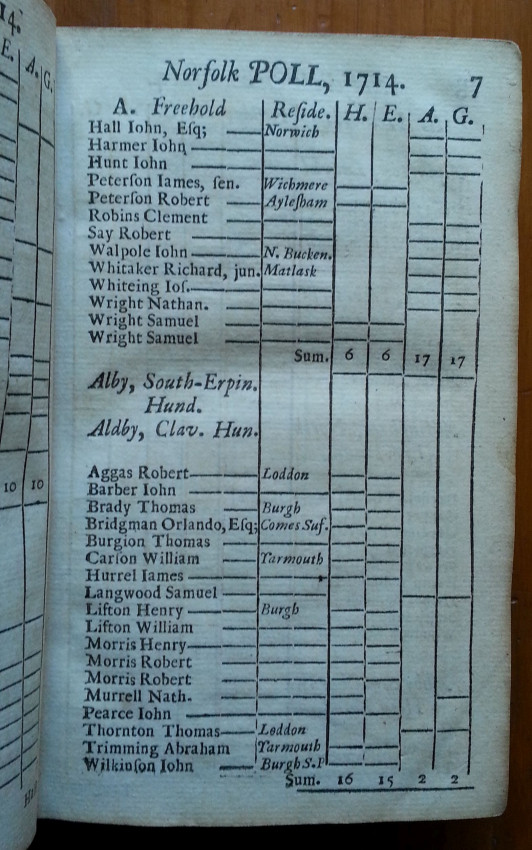 14.
E. A. G.
10 10
Norfolk POLL, 1714. 7
A. Freehold Reſide. H. E. A. G.
Hall Iohn, Eſq; Norwich
Harmer Iohn
Hunt Iohn
Peterſon Iames, ſen. Wichmere
Peterſon Robert Ayleſham
Robins Clement
Say Robert
Walpole Iohn N. Bucken.
Whitaker Richard, jun. Matlask
Whiteing Ioſ.
Wright Nathan.
Wright Samuel
Wright Samuel
Sum. 6 6 17 17
Alby, South-Erpin.
Hund.
Aldby, Clav. Hun.
Aggas Robert Loddon
Barber Iohn
Brady Thomas Burgh
Bridgman Orlando, Eſq; Comes Suf.
Burgion Thomas
Carſon William Yarmouth
Hurrel Iames
Langwood Samuel
Lifton Henry Burgh
Lifton William
Morris Henry
Morris Robert
Morris Robert
Murrell Nath.
Pearce Iohn
Thornton Thomas Loddon
Trimming Abraham Yarmouth
Wilkinſon Iohn Burgh S.P
Sum. 16 15 2 2